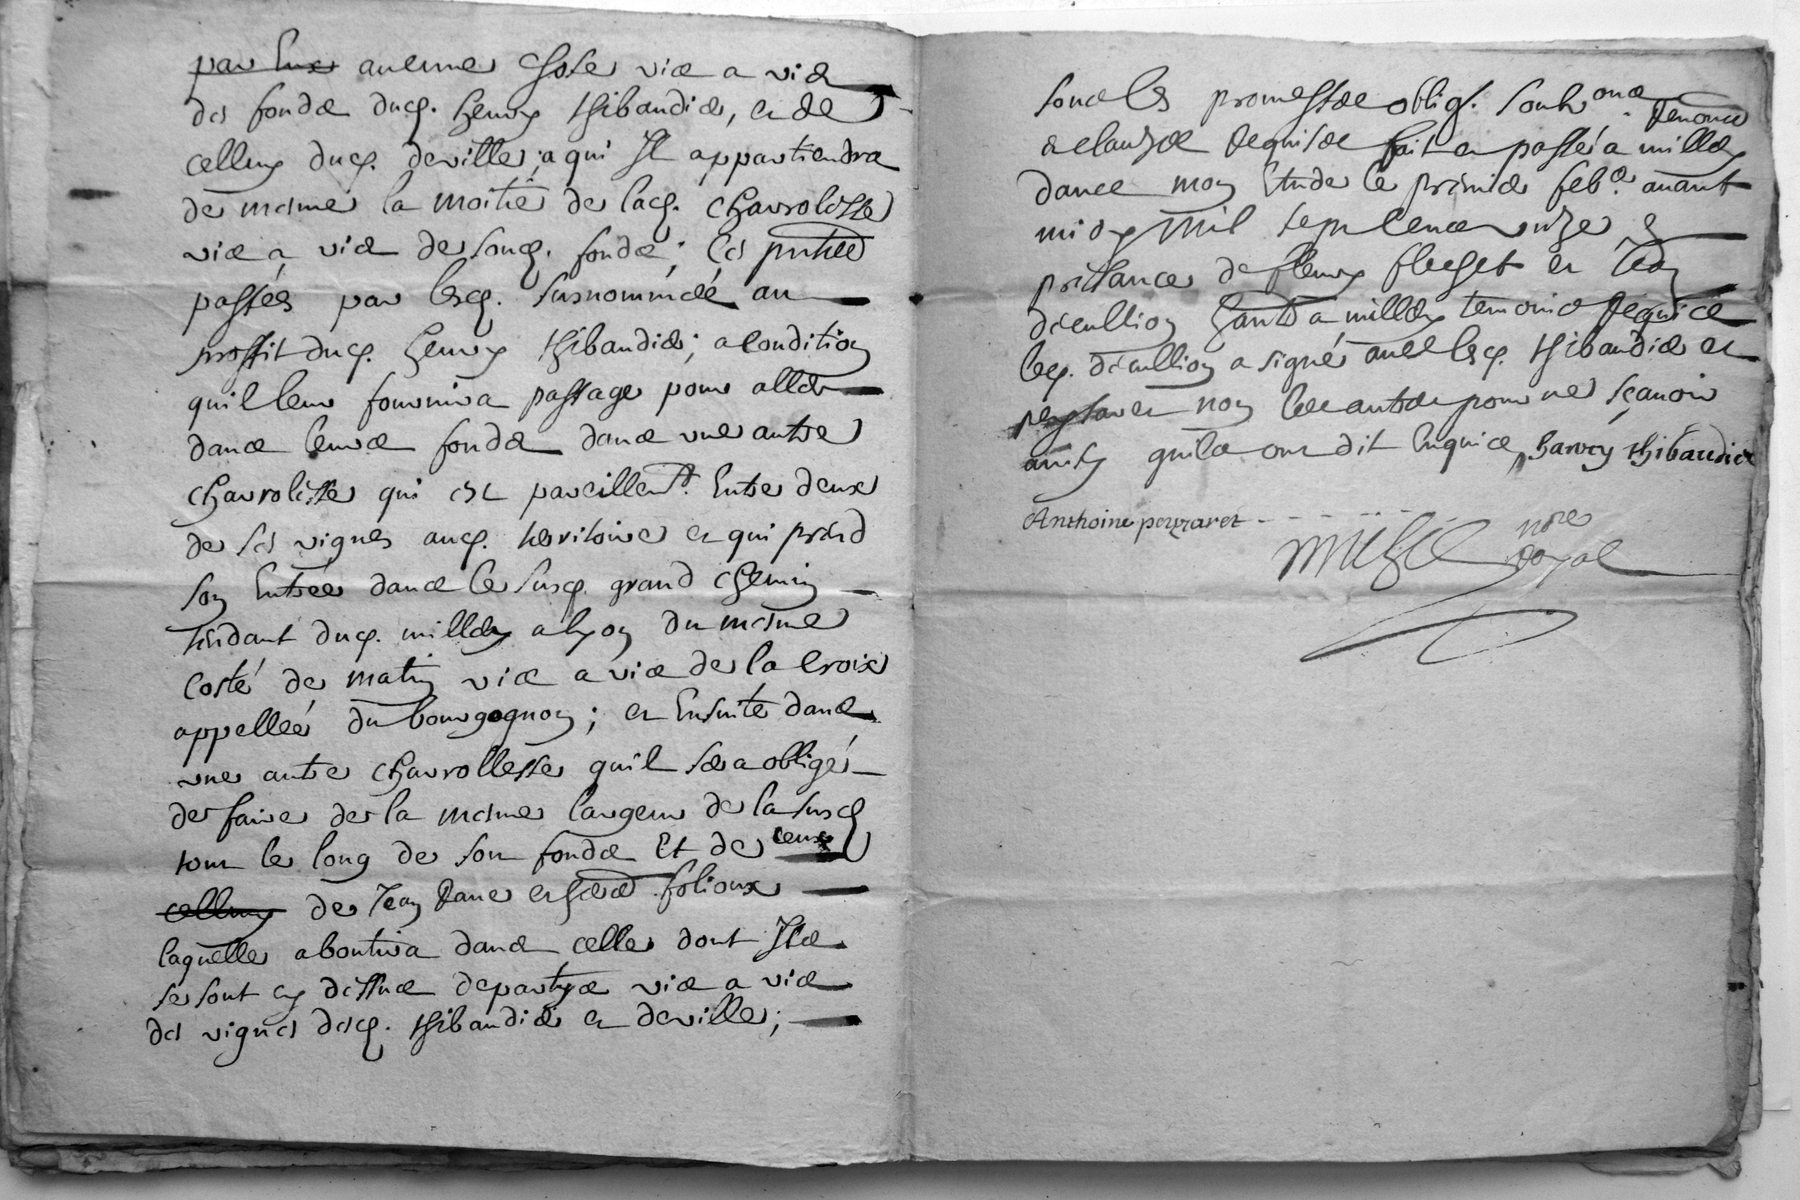 par Eux aucune chose vis a vis
des fonds dud. henry thibaudier, et de
celluy dud. deville; a qui Il appartiendra
de mesme la moitié de lad. charrolisse
vis a vis de soud. fonds; Les pntes
passées par lesd. susnommées au
proffit dud. henry thibaudier; a condition
quil leur fournira passage pour aller
dans leurs fonds dans une autre
charrolisse qui est pareillemt. Entre deux
de ses vignes aud. territoire et qui prend
son Entrée dans le susd. grand chemin
tendant dud. millery a lyon du mesme
costé de matin vis a vis de la croix
appellée du bourgognon; et Ensuite dans
une autre charrollesse quil sera obligé
de faire de la mesme largeur de la susd
tout le long de son fonds Et de ceux
celluy de Jean et folioux
laquelle aboutira dans celle dont Ils
se sont cy dessus departys vis a vis
des vignes desd. thibaudier et deville;
sous les promesses obligs. souhs ons. Renonces
& clauzes Requises fait et passé a millery
dans mon Etude le premier feb.e avant
midy mil sept cents unze &
presences de fleury flechet et
decullion hants a millery temoins Requis
led. decullion a signé avec lesd. thibaudier et
pezzaret non les autres pour ne sçavoir
ainsy quils ont dit Enquis harry thibaudier
Anthoine pezzaret
nore
Royal